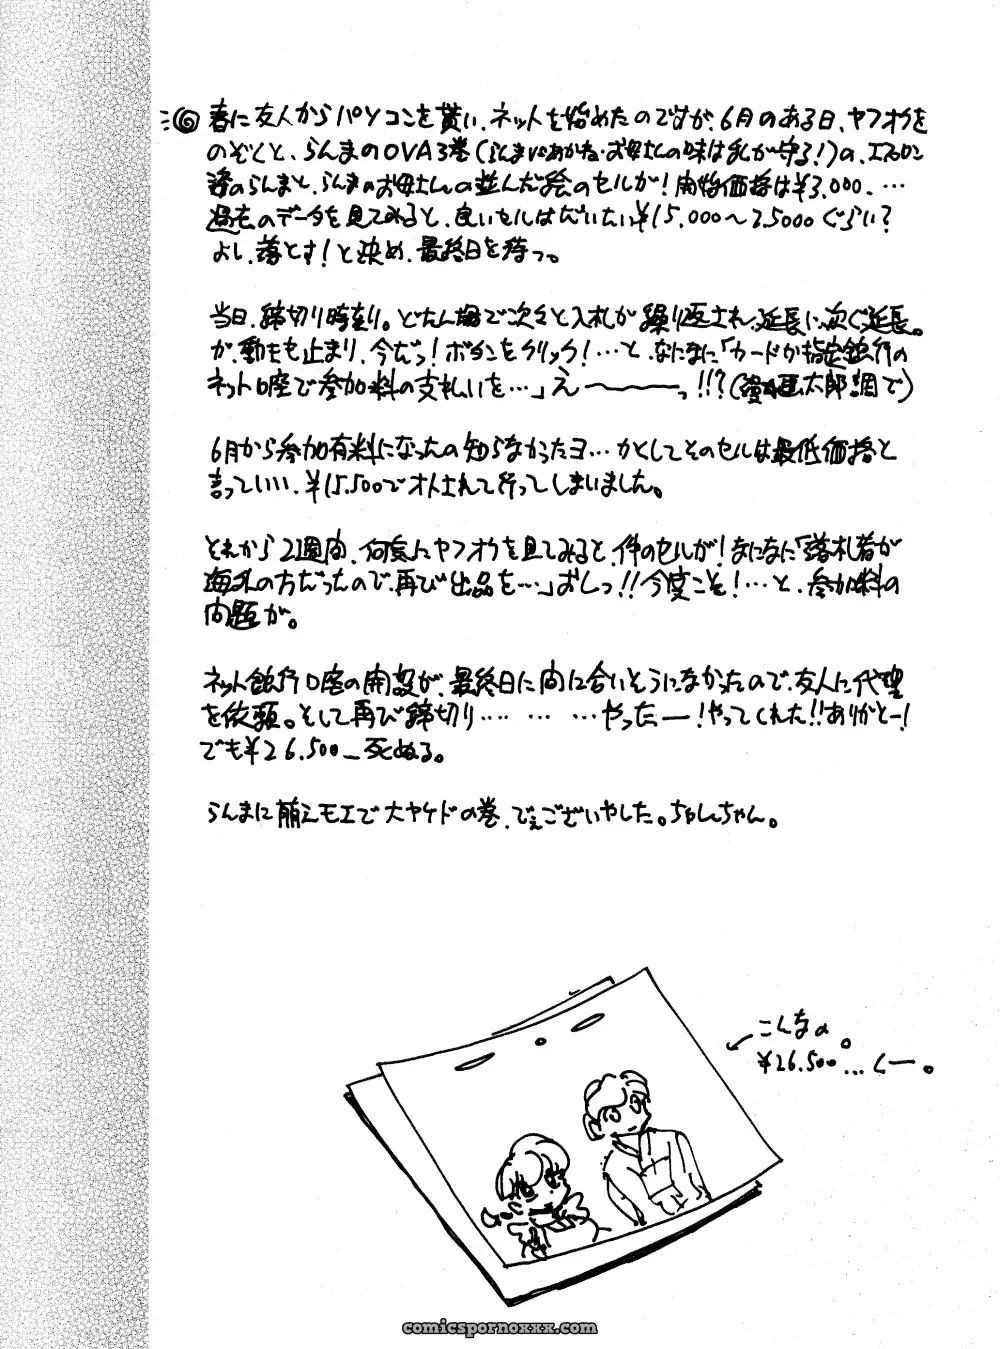 春に友人からパソコンを貰い、ネットを始めたのですが、6月のある日、ヤフオクを
のぞくと、らんまのOVA3巻(らんまvsあかね・お母さんの味は私が守る!)の、エプロン
姿のらんまと、らんまのお母さんの並んだ絵のセルが!開始価格は¥3,000、…
過去のデータを見てみると、良いセルはだいたい¥15,000〜25000ぐらい?
よし、落とす!と決め、最終日を待つ。
当日、締切り時刻。どたん場で次々と入札が繰り返され、延長に次ぐ延長。
が、動きも止まり、今だっ!ボタンをクリック!…と、なになに「カードか指定銀行の
ネット口座で参加料の支払いを…」え〜〜〜っ!!?(漫☆画太郎調で)
6月から参加有料になったの知らなかったヨ…かとしてそのセルは最低価格と
言っていい、¥15,500でオトされて行ってしまいました。
それから2週間、何気にヤフオクを見てみると、件のセルが!なになに「落札者が
海外の方だったので、再び出品を…」おしっ!!今度こそ!…と、参加料の
問題が。
ネット銀行口座の開設が、最終日に間に合いそうになかったので、友人に代理
を依頼。そして再び締切り‥‥ ‥‥ …やったー!やってくれた!!ありがとー!
でも¥26,500_死ぬる。
らんまに萌えモエで大ヤケドの巻、でぇございやした。ちゃんちゃん。
こんなの。
¥26,500…くー。
comicspornoxxx.com